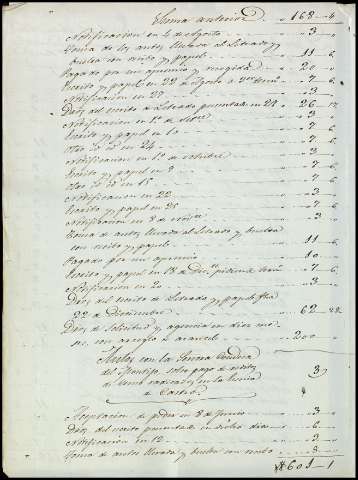 Suma anterior 168 - 6
Notificacion en 4 de Agosto 3
Toma de los autos llevada al Letrado y
buelta con escrito y papel 11 6
Pagado por un apremio y 20
Escrito y papel en 22 de Agosto 7 6
Notificacion en 27 3
Dros. del escrito de Letrado presentado en 29 26 12
Notificacion en 1º de 3
Escrito y papel en 10 7 6
Otro id. id. en 24 7 6
Notificacion en 1º de octubre 3
Escrito y papel en 9 7 6
Otro id. id. en 15 7 6
Notificacion en 22 3
Escrito y papel en 25 7 6
Notificacion en 8 de 3
Toma de autos llevada al Letrado y buelta
con escrito y papel 11 6
Pagado por un apremio 10
Escrito y papel en 18 de 7 6
Notificacion en 2 3
Dros. del escrito de Letrado y papel
22 de Diciembre 62 28
Dros. de Solicitud y agencia en diez me-
ses, con arreglo a arancel 200
Autos con la
del sobre pago de reditos
de radicado en la
de Castro 3
Aceptacion de poder en 8 de Junio 3
Dros. del escrito presentado en dicho dia 6
Notificacion en 12 3
Toma de autos llevada y buelta con 8
#601 - 1